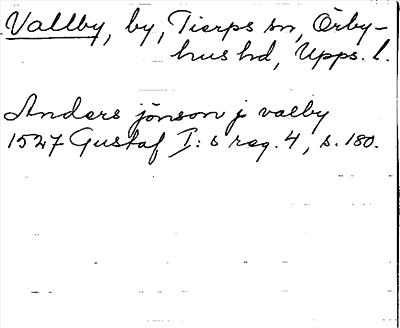 Vallby, by, Tierps sn, Örby-
hus hd, Upps. l.
Anders jönson j valby
1527 Gustaf I:s reg. 4, s. 180.